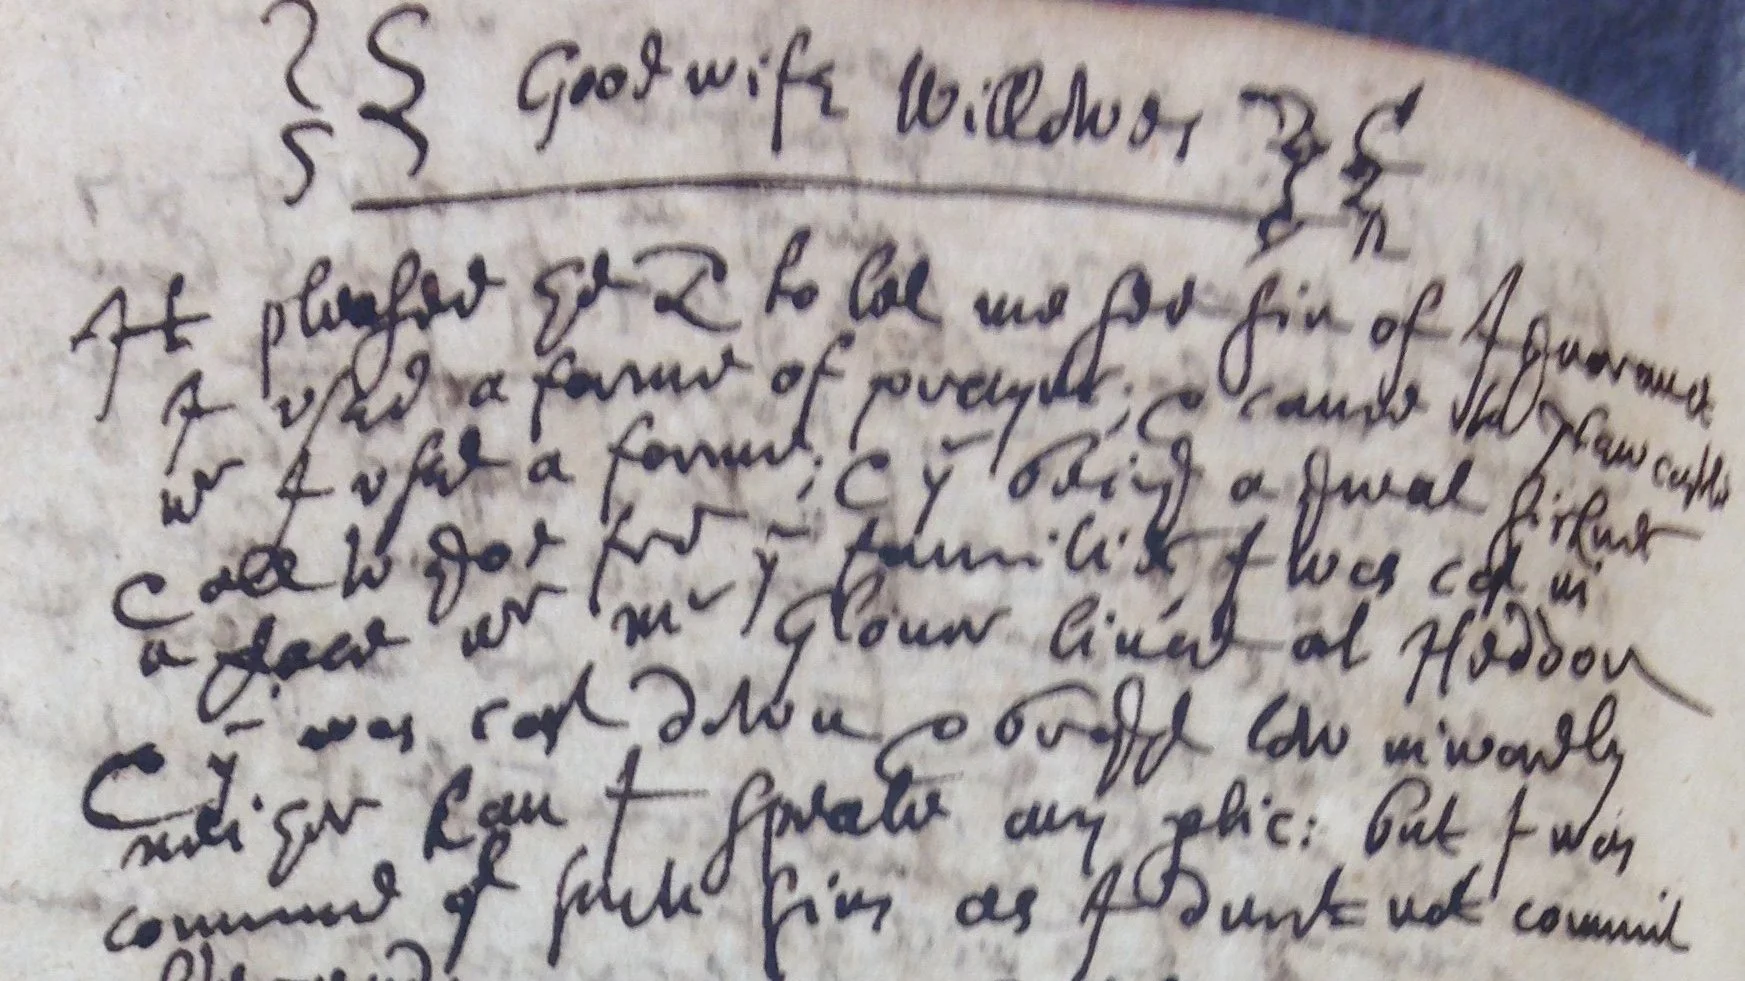 Goodwife Willows
It pleased ye L to let me see sin of Ignorance
I vsed a forme of prayer; & came to New castle
wr I vsed a forme; & yr being a great sicknes
& all to god for ye families I was cast in
a place wr mr Glover liued at Heddon
& yr was cast down & brought low inwardly
neiyer can I speake any : but I was
of such sins as I durst not commit